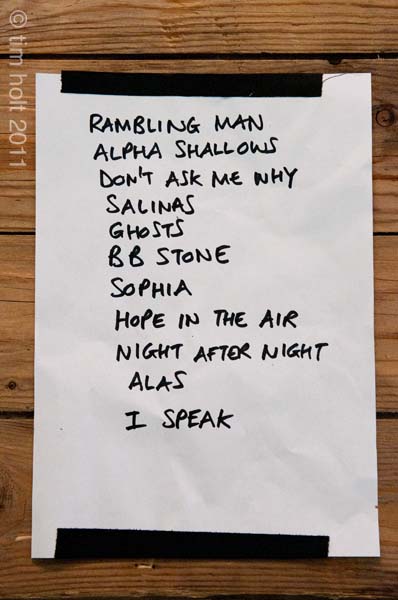 © tim holt 2011
RAMBLING MAN
ALPHA SHALLOWS
DON'T ASK ME WHY
SALINAS
GHOSTS
BB STONE
SOPHIA
HOPE IN THE AIR
NIGHT AFTER NIGHT
ALAS
I SPEAK